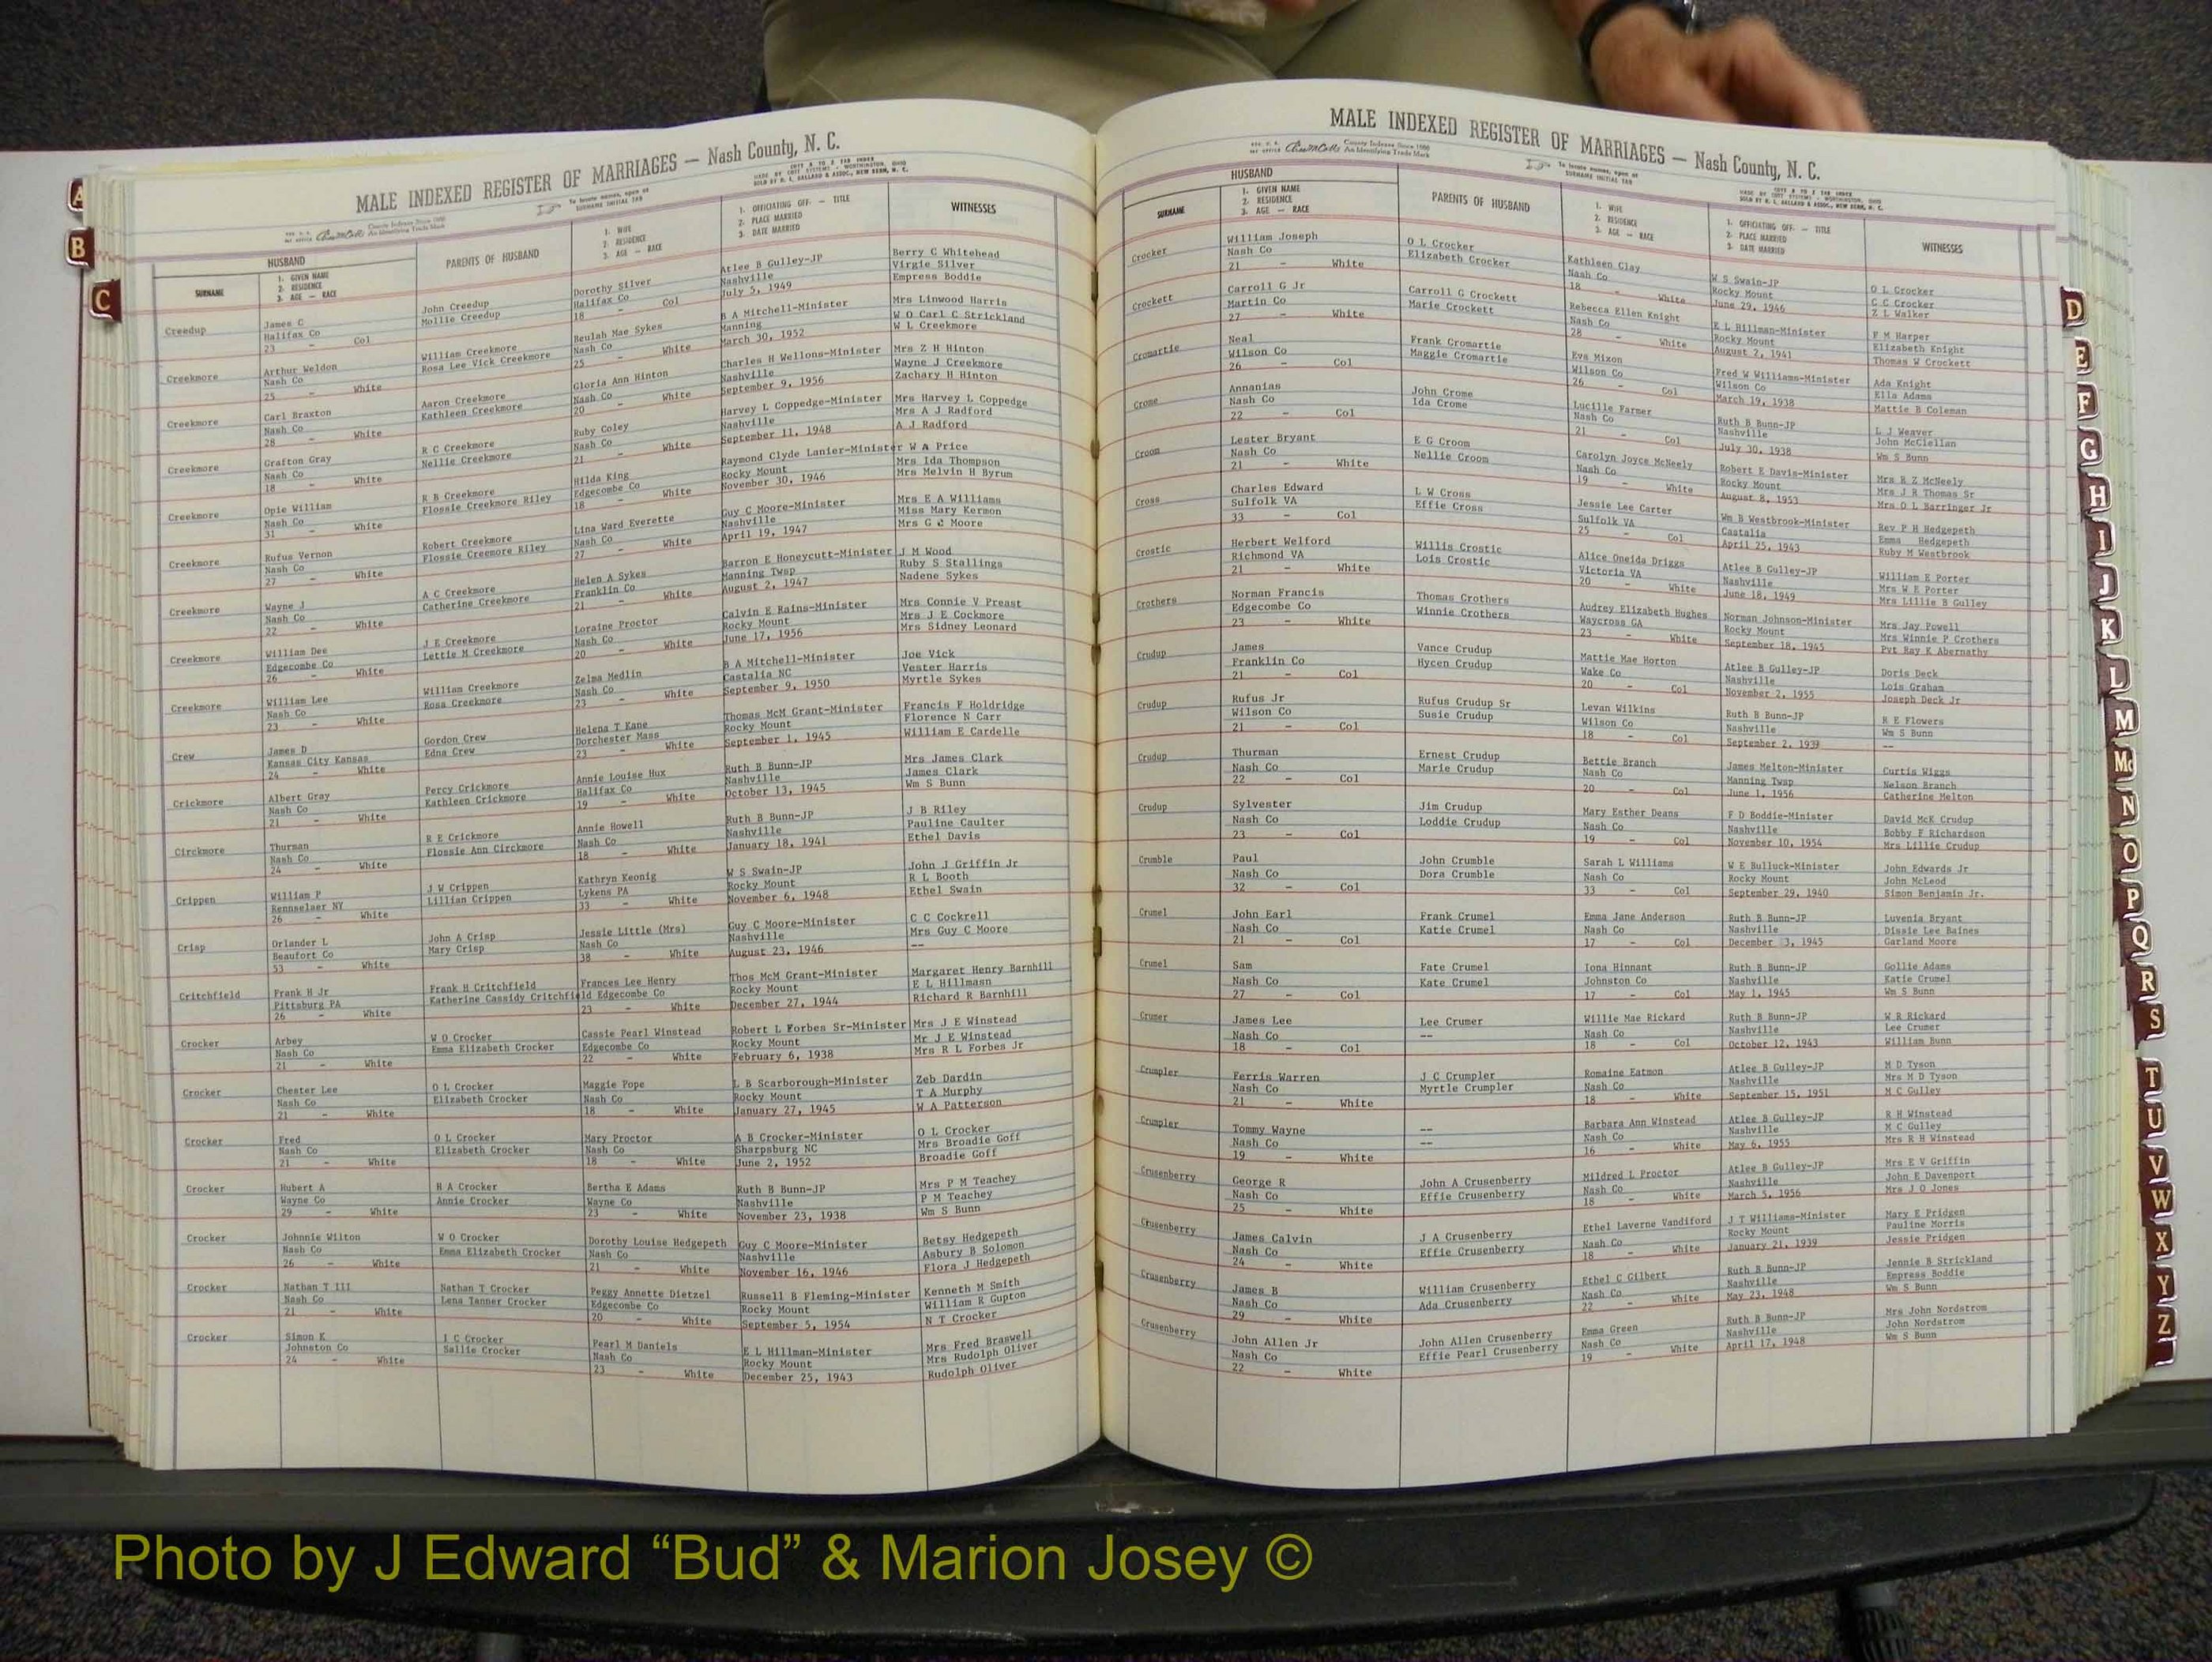 MALE INDEXED REGISTER OF MARRIAGES — Nash County, N. C.
County Indexes Since 1888
An Identifying Trade Mark
To locate names, open at
SURNAME INITIAL TAB
HUSBAND
SURNAME
1. GIVEN NAME
2. RESIDENCE
3. AGE — RACE
PARENTS OF HUSBAND
1. WIFE
2. RESIDENCE
3. AGE — RACE
1. OFFICIATING OFF. — TITLE
2. PLACE MARRIED
3. DATE MARRIED
WITNESSES
Creedup James C John Creedup Dorothy Silver Atlee B Gulley-JP Berry C Whitehead
Halifax Co Mollie Creedup Halifax Co Nashville Virgie Silver
23 - Col 18 - Col July 5, 1949 Empress Boddie
Creekmore Arthur Weldon William Creekmore Beulah Mae Sykes B A Mitchell-Minister Mrs Linwood Harris
Nash Co Rosa Lee Vick Creekmore Nash Co Manning W O Carl C Strickland
25 - White 25 - White March 30, 1952 W L Creekmore
Creekmore Carl Braxton Aaron Creekmore Gloria Ann Hinton Charles H Wellons-Minister Mrs Z H Hinton
Nash Co Kathleen Creekmore Nash Co Nashville Wayne J Creekmore
28 - White 20 - White September 9, 1956 Zachary H Hinton
Creekmore Grafton Gray R C Creekmore Ruby Coley Harvey L Coppedge-Minister Mrs Harvey L Coppedge
Nash Co Nellie Creekmore Nash Co Nashville Mrs A J Radford
18 - White 21 - White September 11, 1948 A J Radford
Creekmore Opie William R B Creekmore Hilda King Raymond Clyde Lanier-Minister W A Price
Nash Co Flossie Creekmore Riley Edgecombe Co Rocky Mount Mrs Ida Thompson
31 - White 18 - White November 30, 1946 Mrs Melvin H Byrum
Creekmore Rufus Vernon Robert Creekmore Lina Ward Everette Guy C Moore-Minister Mrs E A Williams
Nash Co Flossie Creemore Riley Nash Co Nashville Miss Mary Kermon
27 - White 27 - White April 19, 1947 Mrs G C Moore
Creekmore Wayne J A C Creekmore Helen A Sykes Barron E Honeycutt-Minister J M Wood
Nash Co Catherine Creekmore Franklin Co Manning Twsp Ruby S Stallings
22 - White 21 - White August 2, 1947 Nadene Sykes
Creekmore William Dee J E Creekmore Loraine Proctor Calvin E Rains-Minister Mrs Connie V Preast
Edgecombe Co Lettie M Creekmore Nash Co Rocky Mount Mrs J E Cockmore
26 - White 20 - White June 17, 1956 Mrs Sidney Leonard
Creekmore William Lee William Creekmore Zelma Medlin B A Mitchell-Minister Joe Vick
Nash Co Rosa Creekmore Nash Co Castalia NC Vester Harris
23 - White 23 - White September 9, 1950 Myrtle Sykes
Crew James D Gordon Crew Helena T Kane Thomas McM Grant-Minister Francis F Holdridge
Kansas City Kansas Edna Crew Dorchester Mass Rocky Mount Florence N Carr
24 - White 23 - White September 1, 1945 William E Cardelle
Crickmore Albert Gray Percy Crickmore Annie Louise Hux Ruth B Bunn-JP Mrs James Clark
Nash Co Kathleen Crickmore Halifax Co Nashville James Clark
21 - White 19 - White October 13, 1945 Wm S Bunn
Circkmore Thurman R E Crickmore Annie Howell Ruth B Bunn-JP J B Riley
Nash Co Flossie Ann Circkmore Nash Co Nashville Pauline Caulter
24 - White 18 - White January 18, 1941 Ethel Davis
Crippen William P J W Crippen Kathryn Keonig W S Swain-JP John J Griffin Jr
Rennselaer NY Lillian Crippen Lykens PA Rocky Mount R L Booth
26 - White 33 - White November 6, 1948 Ethel Swain
Crisp Orlander L John A Crisp Jessie Little (Mrs) Guy C Moore-Minister C C Cockrell
Beaufort Co Mary Crisp Nash Co Nashville Mrs Guy C Moore
53 - White 38 - White August 23, 1946 --
Critchfield Frank H Jr Frank H Critchfield Frances Lee Henry Thos McM Grant-Minister Margaret Henry Barnhill
Pittsburg PA Katherine Cassidy Critchfield Edgecombe Co Rocky Mount E L Hillmann
26 - White 23 - White December 27, 1944 Richard R Barnhill
Crocker Arbey W O Crocker Cassie Pearl Winstead Robert L Forbes Sr-Minister Mrs J E Winstead
Nash Co Emma Elizabeth Crocker Edgecombe Co Rocky Mount Mr J E Winstead
21 - White 22 - White February 6, 1938 Mrs R L Forbes Jr
Crocker Chester Lee O L Crocker Maggie Pope L B Scarborough-Minister Zeb Dardin
Nash Co Elizabeth Crocker Nash Co Rocky Mount T A Murphy
21 - White 18 - White January 27, 1945 W A Patterson
Crocker Fred O L Crocker Mary Proctor A B Crocker-Minister O L Crocker
Nash Co Elizabeth Crocker Nash Co Sharpsburg NC Mrs Broadie Goff
21 - White 18 - White June 2, 1952 Broadie Goff
Crocker Hubert A H A Crocker Bertha E Adams Ruth B Bunn-JP Mrs P M Teachey
Wayne Co Annie Crocker Wayne Co Nashville P M Teachey
29 - White 23 - White November 23, 1938 Wm S Bunn
Crocker Johnnie Wilton W O Crocker Dorothy Louise Hedgepeth Guy C Moore-Minister Betsy Hedgepeth
Nash Co Emma Elizabeth Crocker Nash Co Nashville Asbury B Solomon
26 - White 21 - White November 16, 1946 Flora J Hedgepeth
Crocker Nathan T III Nathan T Crocker Peggy Annette Dietzel Russell B Fleming-Minister Kenneth M Smith
Nash Co Lena Tanner Crocker Edgecombe Co Rocky Mount William R Gupton
21 - White 20 - White September 5, 1954 N T Crocker
Crocker Simon K I C Crocker Pearl M Daniels E L Hillman-Minister Mrs Fred Braswell
Johnston Co Sallie Crocker Nash Co Rocky Mount Mrs Rudolph Oliver
24 - White 23 - White December 25, 1943 Rudolph Oliver
MALE INDEXED REGISTER OF MARRIAGES — Nash County, N. C.
County Indexes Since 1888
An Identifying Trade Mark
To locate names, open at
SURNAME INITIAL TAB
HUSBAND
SURNAME
1. GIVEN NAME
2. RESIDENCE
3. AGE — RACE
PARENTS OF HUSBAND
1. WIFE
2. RESIDENCE
3. AGE — RACE
1. OFFICIATING OFF. — TITLE
2. PLACE MARRIED
3. DATE MARRIED
WITNESSES
Crocker William Joseph O L Crocker Kathleen Clay W S Swain-JP O L Crocker
Nash Co Elizabeth Crocker Nash Co Rocky Mount C C Crocker
21 - White 18 - White June 29, 1946 Z L Walker
Crockett Carroll G Jr Carroll G Crockett Rebecca Ellen Knight E L Hillman-Minister F M Harper
Martin Co Marie Crockett Nash Co Rocky Mount Elizabeth Knight
27 - White 28 - White August 2, 1941 Thomas W Crockett
Cromartie Neal Frank Cromartie Eva Mixon Fred W Williams-Minister Ada Knight
Wilson Co Maggie Cromartie Wilson Co Wilson Co Ella Adams
26 - Col 26 - Col March 19, 1938 Mattie B Coleman
Crome Annanias John Crome Lucille Farmer Ruth B Bunn-JP L J Weaver
Nash Co Ida Crome Nash Co Nashville John McClellan
22 - Col 21 - Col July 30, 1938 Wm S Bunn
Croom Lester Bryant E G Croom Carolyn Joyce McNeely Robert E Davis-Minister Mrs R Z McNeely
Nash Co Nellie Croom Nash Co Rocky Mount Mrs J R Thomas Sr
21 - White 19 - White August 8, 1953 Mrs O L Barringer Jr
Cross Charles Edward L W Cross Jessie Lee Carter Wm B Westbrook-Minister Rev P H Hedgepeth
Sulfolk VA Effie Cross Sulfolk VA Castalia Emma Hedgepeth
33 - Col 25 - Col April 25, 1943 Ruby M Westbrook
Crostic Herbert Welford Willis Crostic Alice Oneida Driggs Atlee B Gulley-JP William E Porter
Richmond VA Lois Crostic Victoria VA Nashville Mrs W E Porter
21 - White 20 - White June 18, 1949 Mrs Lillie B Gulley
Crothers Norman Francis Thomas Crothers Audrey Elizabeth Hughes Norman Johnson-Minister Mrs Jay Powell
Edgecombe Co Winnie Crothers Waycross GA Rocky Mount Mrs Winnie P Crothers
23 - White 23 - White September 18, 1945 Pvt Ray K Abernathy
Crudup James Vance Crudup Mattie Mae Horton Atlee B Gulley-JP Doris Deck
Franklin Co Hycen Crudup Wake Co Nashville Lois Graham
21 - Col 20 - Col November 2, 1955 Joseph Deck Jr
Crudup Rufus Jr Rufus Crudup Sr Levan Wilkins Ruth B Bunn-JP R E Flowers
Wilson Co Susie Crudup Wilson Co Nashville Wm S Bunn
21 - Col 18 - Col September 2, 1939 --
Crudup Thurman Ernest Crudup Bettie Branch James Melton-Minister Curtis Wiggs
Nash Co Marie Crudup Nash Co Manning Twsp Nelson Branch
22 - Col 20 - Col June 1, 1956 Catherine Melton
Crudup Sylvester Jim Crudup Mary Esther Deans F D Boddie-Minister David McK Crudup
Nash Co Loddie Crudup Nash Co Nashville Bobby F Richardson
23 - Col 19 - Col November 10, 1954 Mrs Lillie Crudup
Crumble Paul John Crumble Sarah L Williams W E Bulluck-Minister John Edwards Jr
Nash Co Dora Crumble Nash Co Rocky Mount John McLeod
32 - Col 33 - Col September 29, 1940 Simon Benjamin Jr.
Crumel John Earl Frank Crumel Emma Jane Anderson Ruth B Bunn-JP Luvenia Bryant
Nash Co Katie Crumel Nash Co Nashville Dissie Lee Baines
21 - Col 17 - Col December 3, 1945 Garland Moore
Crumel Sam Fate Crumel Iona Hinnant Ruth B Bunn-JP Gollie Adams
Nash Co Kate Crumel Johnston Co Nashville Katie Crumel
27 - Col 17 - Col May 1, 1945 Wm S Bunn
Crumer James Lee Lee Crumer Willie Mae Rickard Ruth B Bunn-JP W R Rickard
Nash Co -- Nash Co Nashville Lee Crumer
18 - Col 18 - Col October 12, 1943 William Bunn
Crumpler Ferris Warren J C Crumpler Romaine Eatmon Atlee B Gulley-JP M D Tyson
Nash Co Myrtle Crumpler Nash Co Nashville Mrs M D Tyson
21 - White 18 - White September 15, 1951 M C Gulley
Crumpler Tommy Wayne -- Barbara Ann Winstead Atlee B Gulley-JP R H Winstead
Nash Co -- Nash Co Nashville M C Gulley
19 - White 16 - White May 6, 1955 Mrs R H Winstead
Crusenberry George R John A Crusenberry Mildred L Proctor Atlee B Gulley-JP Mrs E V Griffin
Nash Co Effie Crusenberry Nash Co Nashville John E Davenport
25 - White 18 - White March 5, 1956 Mrs J O Jones
Crusenberry James Calvin J A Crusenberry Ethel Laverne Vandiford J T Williams-Minister Mary E Pridgen
Nash Co Effie Crusenberry Nash Co Rocky Mount Pauline Morris
24 - White 18 - White January 21, 1939 Jessie Pridgen
Crusenberry James B William Crusenberry Ethel C Gilbert Ruth B Bunn-JP Jennie B Strickland
Nash Co Ada Crusenberry Nash Co Nashville Empress Boddie
29 - White 22 - White May 23, 1948 Wm S Bunn
Crusenberry John Allen Jr John Allen Crusenberry Emma Green Ruth B Bunn-JP Mrs John Nordstrom
Nash Co Effie Pearl Crusenberry Nash Co Nashville John Nordstrom
22 - White 19 - White April 17, 1948 Wm S Bunn
A
B
C
D
E
F
G
H
I
J
K
L
M
Mc
N
O
P
Q
R
S
T
U
V
W
X
Y
Z
Photo by J Edward “Bud” & Marion Josey ©